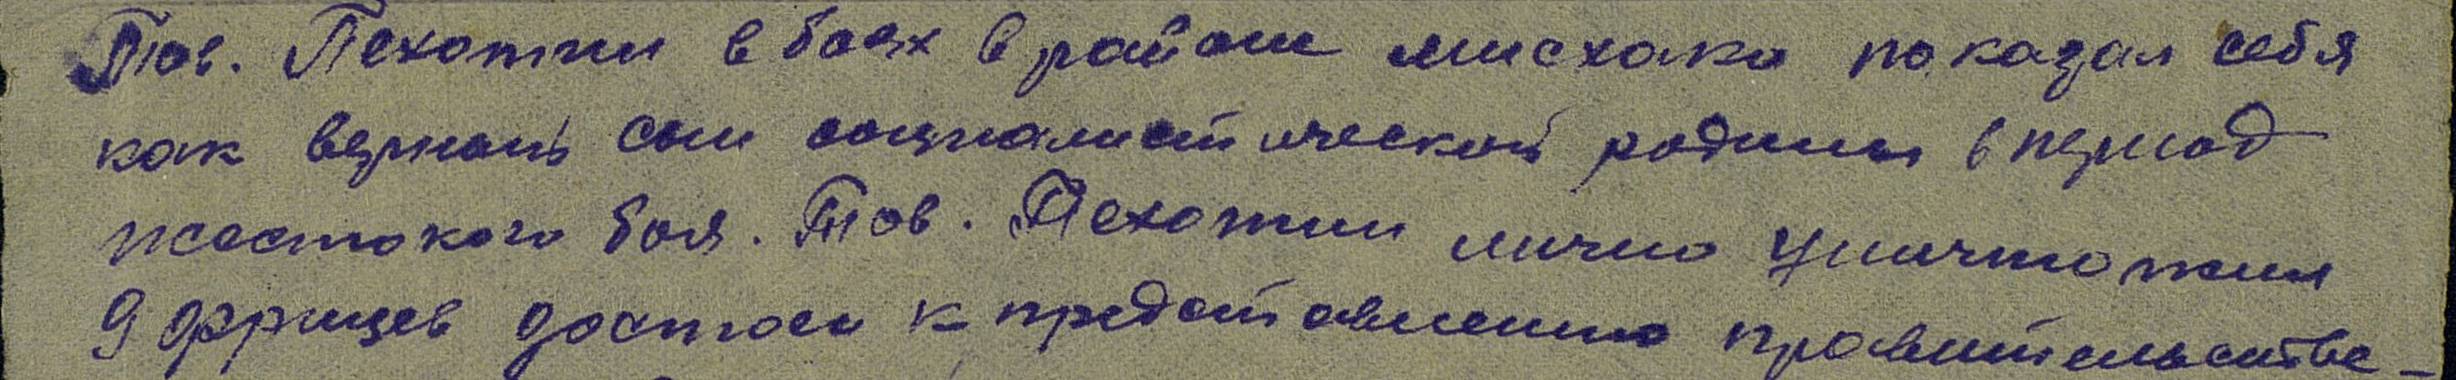 Тов. Пехотин в боях в районе мисхако показал себя
как верный сын социалистической родины в период
жестокого боя. Тов. Пехотин лично уничтожил
9 фрицев достоен к представлению правительстве-